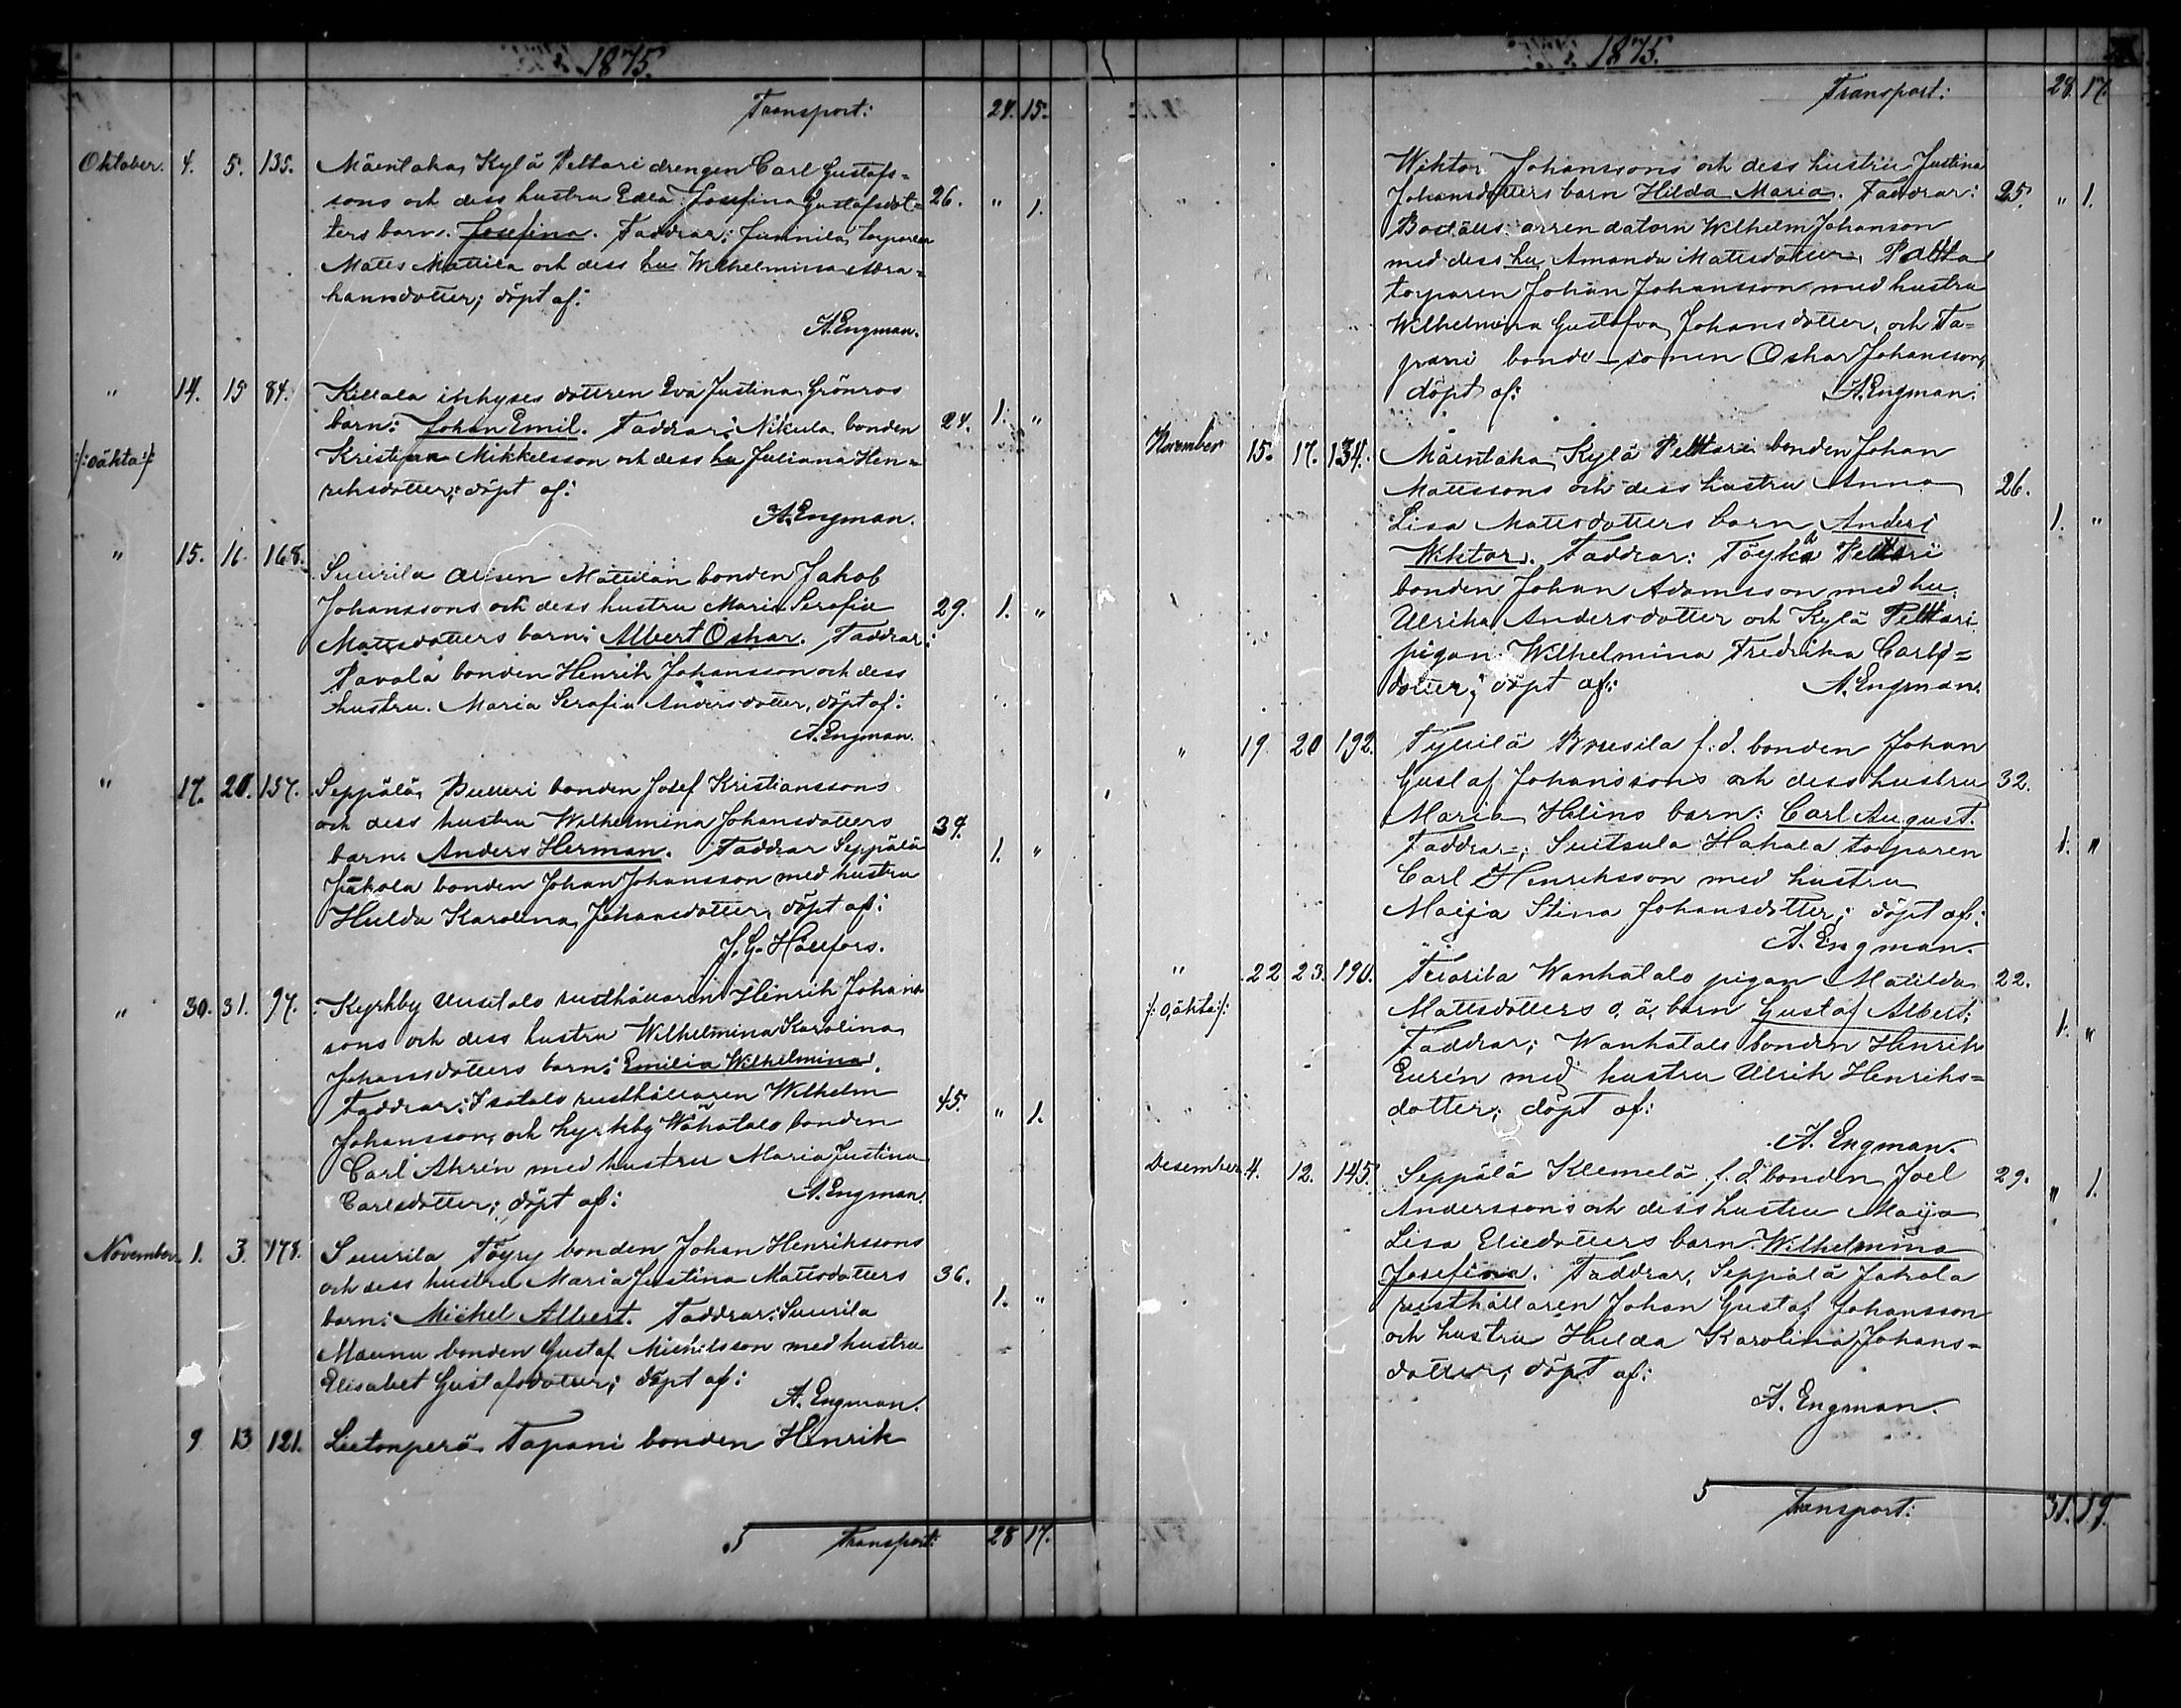 1875.
Transport: 24. 15.
Oktober. 4. 5. 135. Mäentaka Kylä Pelttari drengen Carl Gustafs=
sons och dess hustru Edla Josefina Gustafsdot= 26. " 1.
ters barn. Josefina. Faddrar: Junnila torparen
Matts Mattila och dess hu Wilhelmina Abra=
hamsdotter; döpt af:
A. Engman.
" 14. 15 84. Killala inhyses dottren Eva Justina Grönros
barn: Johan Emil. Faddrar: Nikula bonden 24. 1. "
/:oäkta:/ Kristian Mikkelsson och dess hu Juliana Hen=
riksdotter; döpt af:
A. Engman.
" 15. 16. 168. Suurila Mattilan bonden Jakob
Johanssons och dess hustru Maria Serafia 29. 1. "
Mattsdotters barn: Albert Oskar. Faddrar:
Pavola bonden Henrik Johansson och dess
hustru. Maria Serafia Andersdotter, döpt af:
A. Engman.
" 17. 20. 157. Seppälä bonden Josef Kristianssons
och dess hustru Wilhelmina Johansdotters 39.
barn: Anders Herman. Faddrar Seppälä 1. "
Jakola bonden Johan Johansson med hustru
Hulda Karolina Johansdotter, döpt af:
J. G. Hällfors.
" 30. 31. 97. Kyrkby Uusitalo rusthållaren Henrik Johans
sons och dess hustru Wilhelmina Karolina
Johansdotters barn: Emilia Wilhelmina.
Faddrar: Isotalo rusthållaren Wilhelm 45. " 1.
Johansson, och Kyrkby Wähätalo bonden
Carl Ahrén med hustru Maria Justina
Carlsdotter; döpt af: A. Engman.
November 1. 3. 178. Suurila Töyry bonden Johan Henrikssons
och dess hustru Maria Justina Mattsdotters 36.
barn: Mickel Albert. Faddrar: Suurila 1. "
Maunu bonden Gustaf Mickelsson med hustru
Elisabet Gustafsdotter; döpt af:
A. Engman.
9 13 121. Lietonperä Tapani bonden Henrik
5 Transport: 28 17.
1875.
Transport: 28. 17.
Wiktor Johanssons och dess hustru Justina
Johansdotters barn Hilda Maria. Faddrar: 25. " 1.
Boställs arrendatorn Wilhelm Johanson
med dess hu Amanda Mattsdotter, Paltta
torparen Johan Johansson med hustru
Wilhelmina Gustafva Johansdotter, och Ta=
pani bonde-sonen Oskar Johansson,
döpt af: A. Engman.
November 15. 17. 134. Mäentaka Kylä Pelttari bonden Johan
Mattssons och dess hustru Anna 26.
Lisa Mattsdotters barn Anders 1. "
Wiktor. Faddrar: Töykä Pelttari
bonden Johan Adamsson med hu.
Ulrika Andersdotter och Kylä Pelttari
pigan Wilhelmina Fredrika Carls=
dotter; döpt af: A. Engman.
" 19. 20 192. Tyllilä Brusila f.d. bonden Johan
Gustaf Johanssons och dess hustru 32.
Maria Helins barn: Carl August.
Faddrar; Suitsula Hakala torparen 1. "
Carl Henriksson med hustru
Maija Stina Johansdotter; döpt af:
A. Engman.
" 22 23. 190. Wanhatalo pigan Matilda 22.
/:oäkta:/ Mattsdotters o. ä. barn Gustaf Albert;
Faddrar; Wanhatalo bonden Henrik 1. "
Eurén med hustru Ulrik Henriks=
dotter; döpt af:
A. Engman.
Desember 4. 12. 145. Seppälä Klemelä f.d. bonden Joel 29. " 1.
Anderssons och dess hustru Maija
Lisa Eliedotters barn Wilhelmina
Josefina. Faddrar, Seppälä Jakola
rusthållaren Johan Gustaf Johansson
och hustru Hulda Karolina Johans=
dotter; döpt af:
A. Engman.
5 Transport: 31. 19.